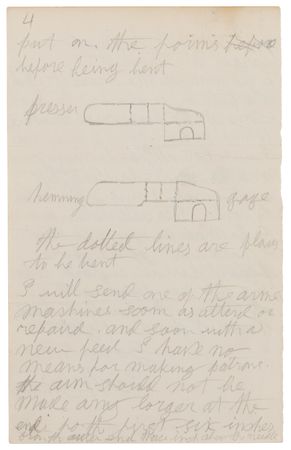 4
put on. the forms before
before being bent
presser
hemming gage
the dotted lines are places
to be bent
I will send one of the arme
machines soon as alterd or
repaird. and soon with a
new feed I have no
means for making patrons.
the arm should not be
made any larger at the
end